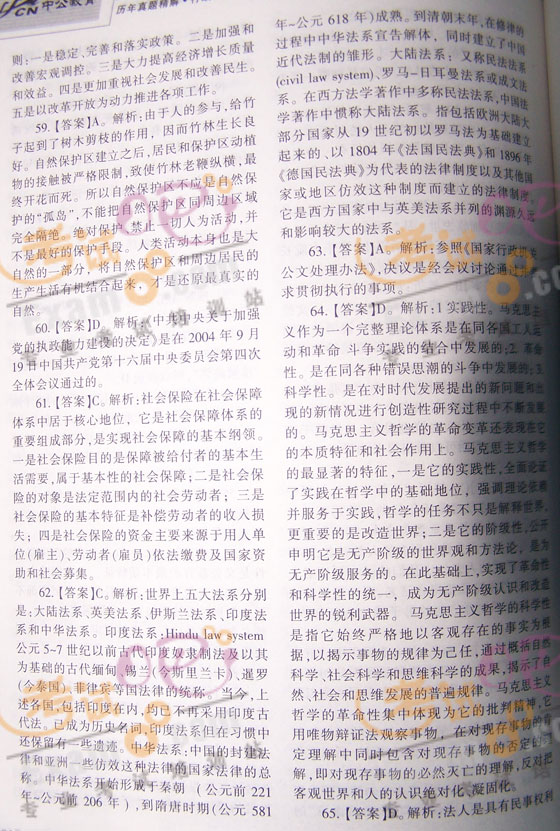 中公教育
历年真题精解
则:一是稳定、完善和落实政策。二是加强和
改善宏观调控。三是大力提高经济增长质量
和效益。四是更加重视社会发展和改善民生。
五是以改革开放为动力推进各项工作。
59.【答案】A。解析:由于人的参与,给竹
子起到了树木剪枝的作用,因而竹林生长良
好。自然保护区建立之后,居民和保护区动植
物的接触被严格限制,致使竹林老鞭纵横,最
终开花而死。所以自然保护区不应是自然保
护的“孤岛”,不能把自然保护区同周边区域
完全隔绝。绝对保护、禁止一切人为活动,并
不是最好的保护手段。人类活动本身也是大
自然的一部分,将自然保护区和周边居民的
生产生活有机结合起来,才是还原最真实的
自然。
60.【答案】D。解析:《中共中央关于加强
党的执政能力建设的决定》是在 2004 年 9 月
19 日中国共产党第十六届中央委员会第四次
全体会议通过的。
61.【答案】C。解析:社会保险在社会保障
体系中居于核心地位,它是社会保障体系的
重要组成部分,是实现社会保障的基本纲领。
一是社会保险目的是保障被给付者的基本生
活需要,属于基本性的社会保障;二是社会保
险的对象是法定范围内的社会劳动者;三是
社会保险的基本特征是补偿劳动者的收入损
失;四是社会保险的资金主要来源于用人单
位(雇主)、劳动者(雇员)依法缴费及国家资
助和社会募集。
62.【答案】C。解析:世界上五大法系分别
是:大陆法系、英美法系、伊斯兰法系、印度法
系和中华法系。印度法系:Hindu law system
公元 5~7 世纪以前古代印度奴隶制法及以其
为基础的古代缅甸、锡兰(今斯里兰卡)、暹罗
(今泰国)、菲律宾等国法律的统称。当今,上
述各国,包括印度在内,均已不再采用印度古
代法,已成为历史名词,印度法系但在习惯中
还保留有一些遗迹。中华法系:中国的封建法
律和亚洲一些仿效这种法律的国家法律的总
称。中华法系开始形成于秦朝(公元前 221
年~公元前 206 年),到隋唐时期(公元 581
年~公元 618 年)成熟。到清朝末年,在修律的
过程中中华法系宣告解体,同时建立了中国
近代法制的雏形。大陆法系:又称民法法系
(civil law system)、罗马-日耳曼法系或成文法
系。在西方法学著作中多称民法法系,中国法
学著作中惯称大陆法系。指包括欧洲大陆大
部分国家从 19 世纪初以罗马法为基础建立
起来的、以 1804 年《法国民法典》和 1896 年
《德国民法典》为代表的法律制度以及其他国
家或地区仿效这种制度而建立的法律制度。
它是西方国家中与英美法系并列的渊源久远
和影响较大的法系。
63.【答案】A。解析:参照《国家行政机关
公文处理办法》,决议是经会议讨论通过
求贯彻执行的事项。
64.【答案】D。解析:1 实践性。马克思主
义作为一个完整理论体系是在同各国工人运
动和革命斗争实践的结合中发展的;2.革命
性。是在同各种错误思潮的斗争中发展的;3.
科学性。是在对时代发展提出的新问题和出
现的新情况进行创造性研究过程中不断发展
的。马克思主义哲学的革命变革还表现在它
的本质特征和社会作用上。马克思主义哲学
的最显著的特征,一是它的实践性,全面论证
了实践在哲学中的基础地位,强调理论依赖
并服务于实践,哲学的任务不只是解释世界,
更重要的是改造世界;二是它的阶级性,公开
申明它是无产阶级的世界观和方法论,是为
无产阶级服务的。在此基础上,实现了革命性
和科学性的统一,成为无产阶级认识和改造
世界的锐利武器。马克思主义哲学的科学性
是指它始终严格地以客观存在的事实为根
据,以揭示事物的规律为己任,通过概括自然
科学、社会科学和思维科学的成果,揭示了自
然、社会和思维发展的普遍规律。马克思主义
哲学的革命性集中体现为它的批判精神,它
用唯物辩证法观察事物,在对现存事物的肯
定理解中同时包含对现存事物的否定理
解,即对现存事物的必然灭亡的理解,反对把
客观世界和人的认识绝对化、凝固化。
65.【答案】D。解析:法人是具有民事权利